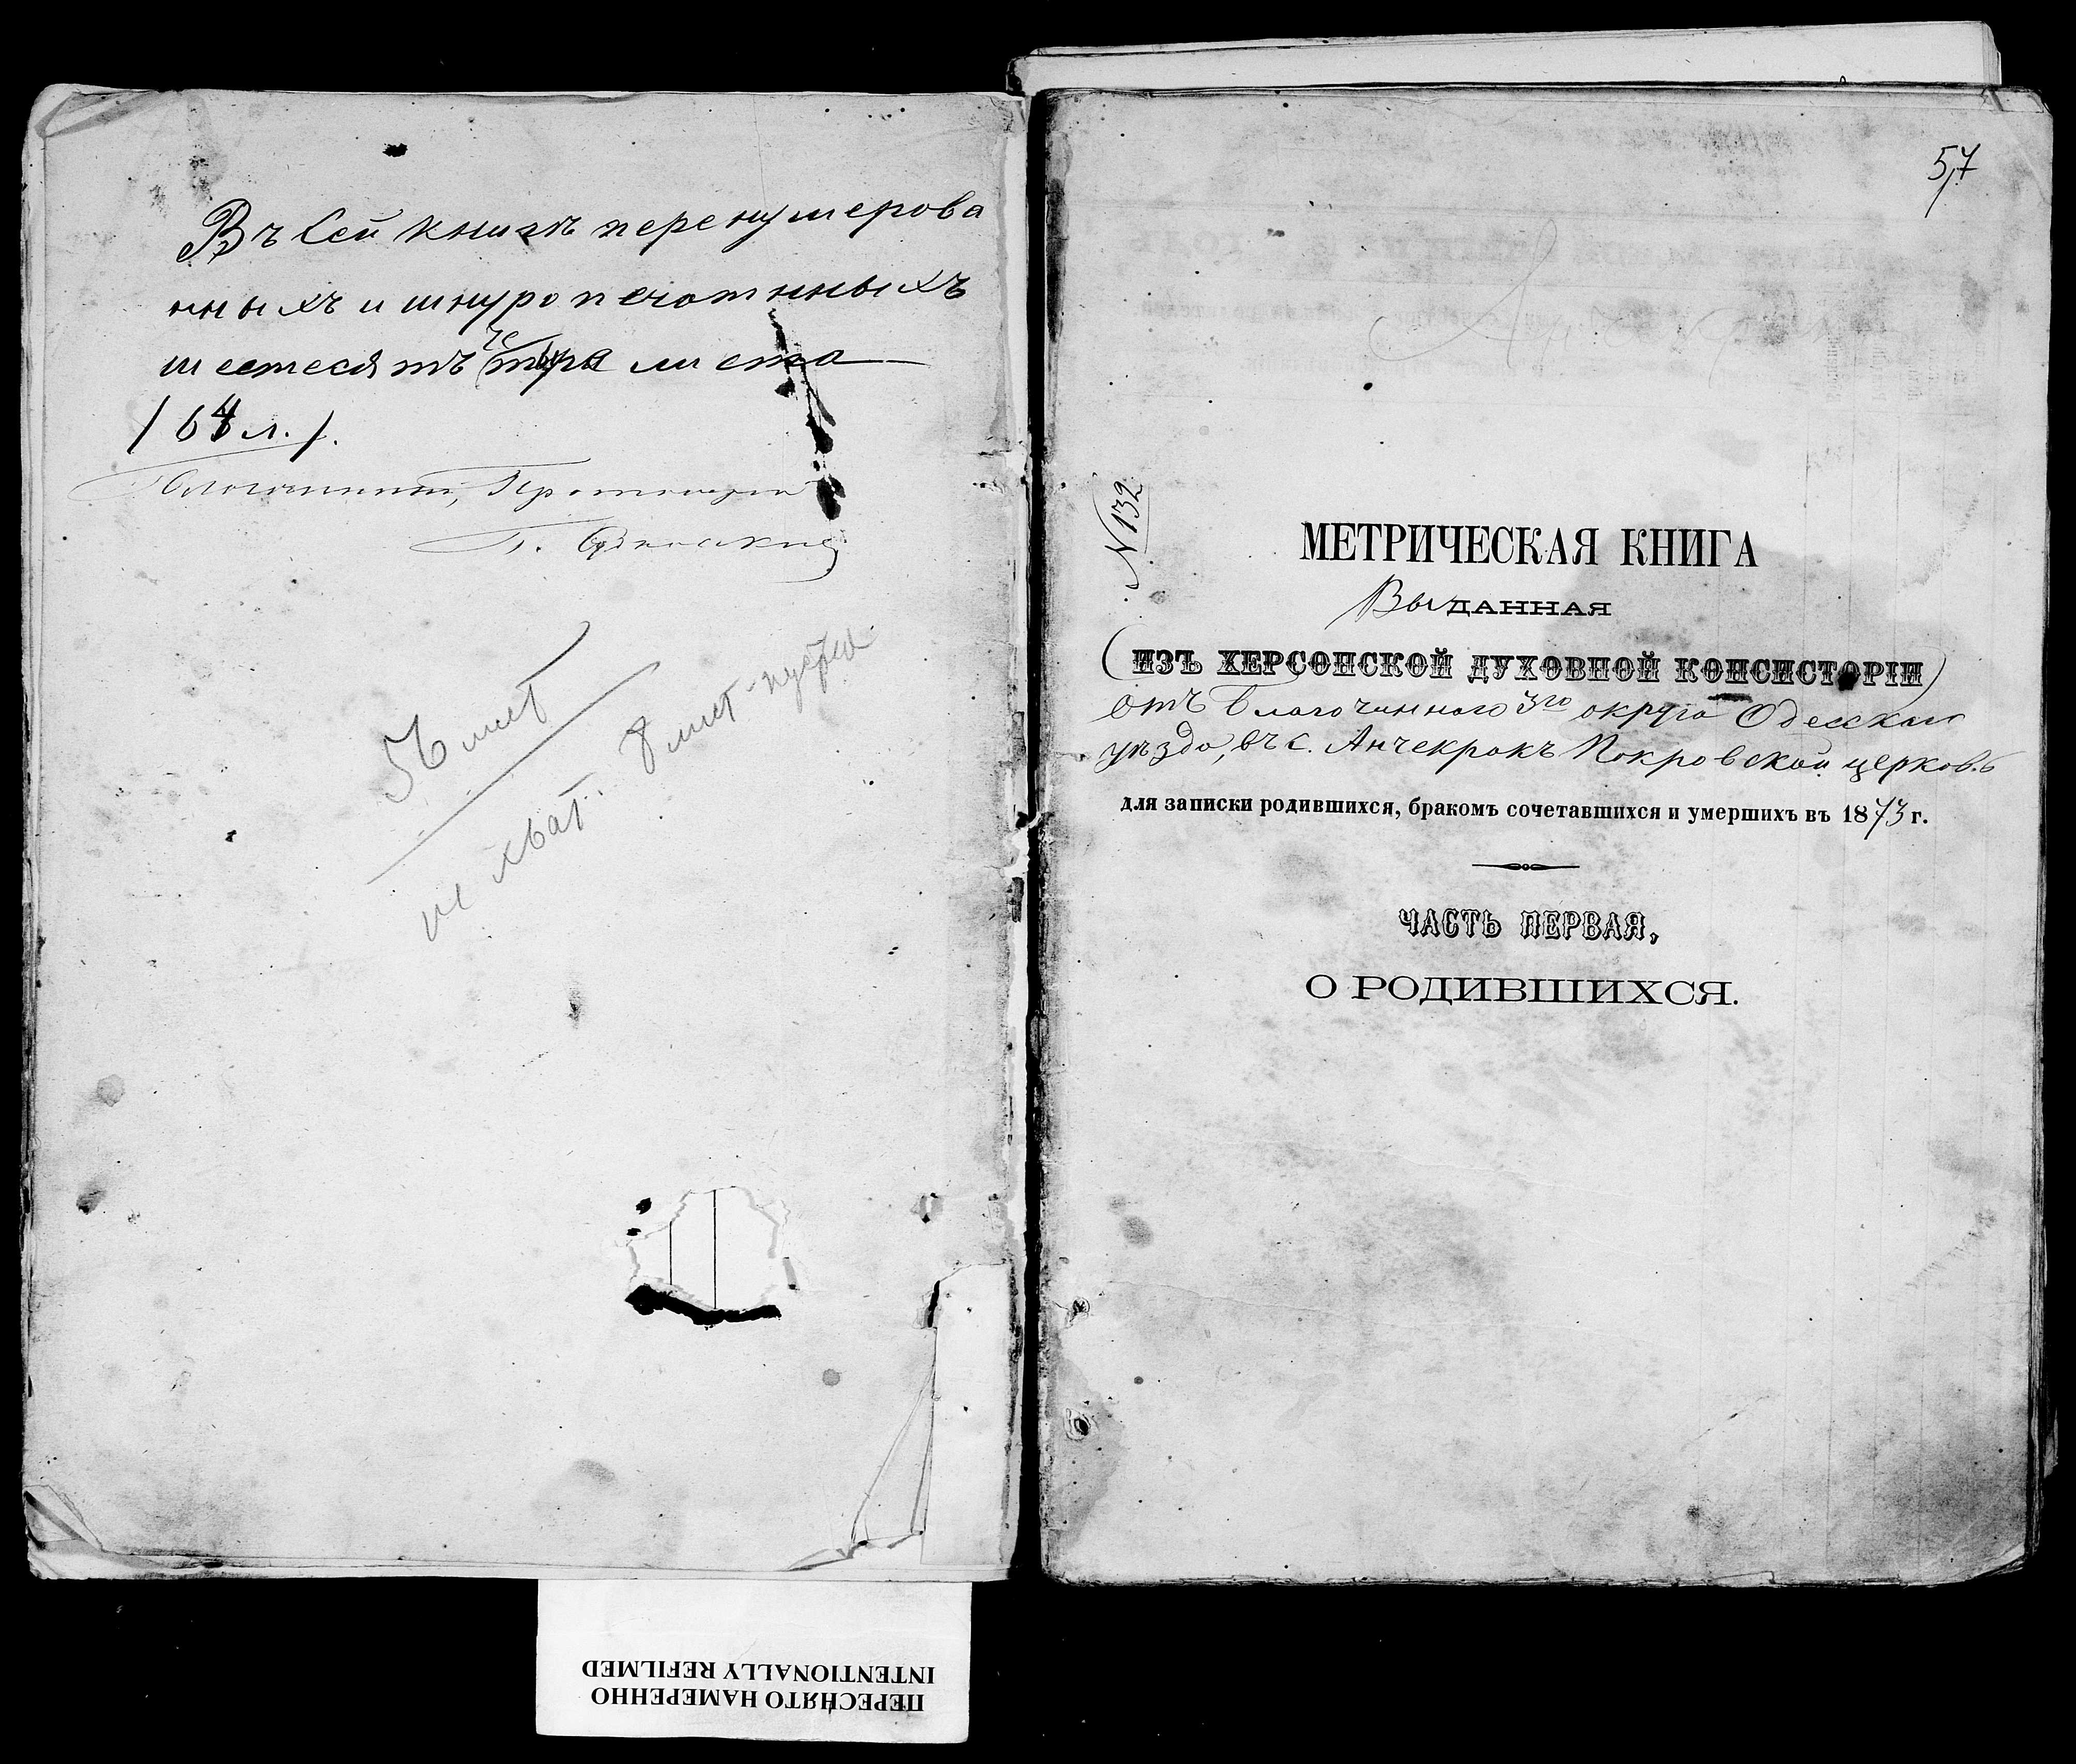 Въ сей книгѣ перенумерова
нныхъ и шнуропечатнныхъ
шестесятъ четыре листа
/ 64 л. /.
Благочинный, Протоиерей
56 лист
не хват. 8 лист пустых
57
№ 132
МЕТРИЧЕСКАЯ КНИГА
Выданная
(ИЗЪ ХЕРСОНСКОЙ ДУХОВНОЙ КОНСИСТОРІИ)
отъ Благочиннаго 3го округа Одесскаго
уѣзда, въ с. Анчекракъ Покровской церковь
для записки родившихся, бракомъ сочетавшихся и умершихъ въ 1873 г.
ЧАСТЬ ПЕРВАЯ,
О РОДИВШИХСЯ.
ПЕРЕСНЯТО НАМЕРЕННО
INTENTIONALLY REFILMED